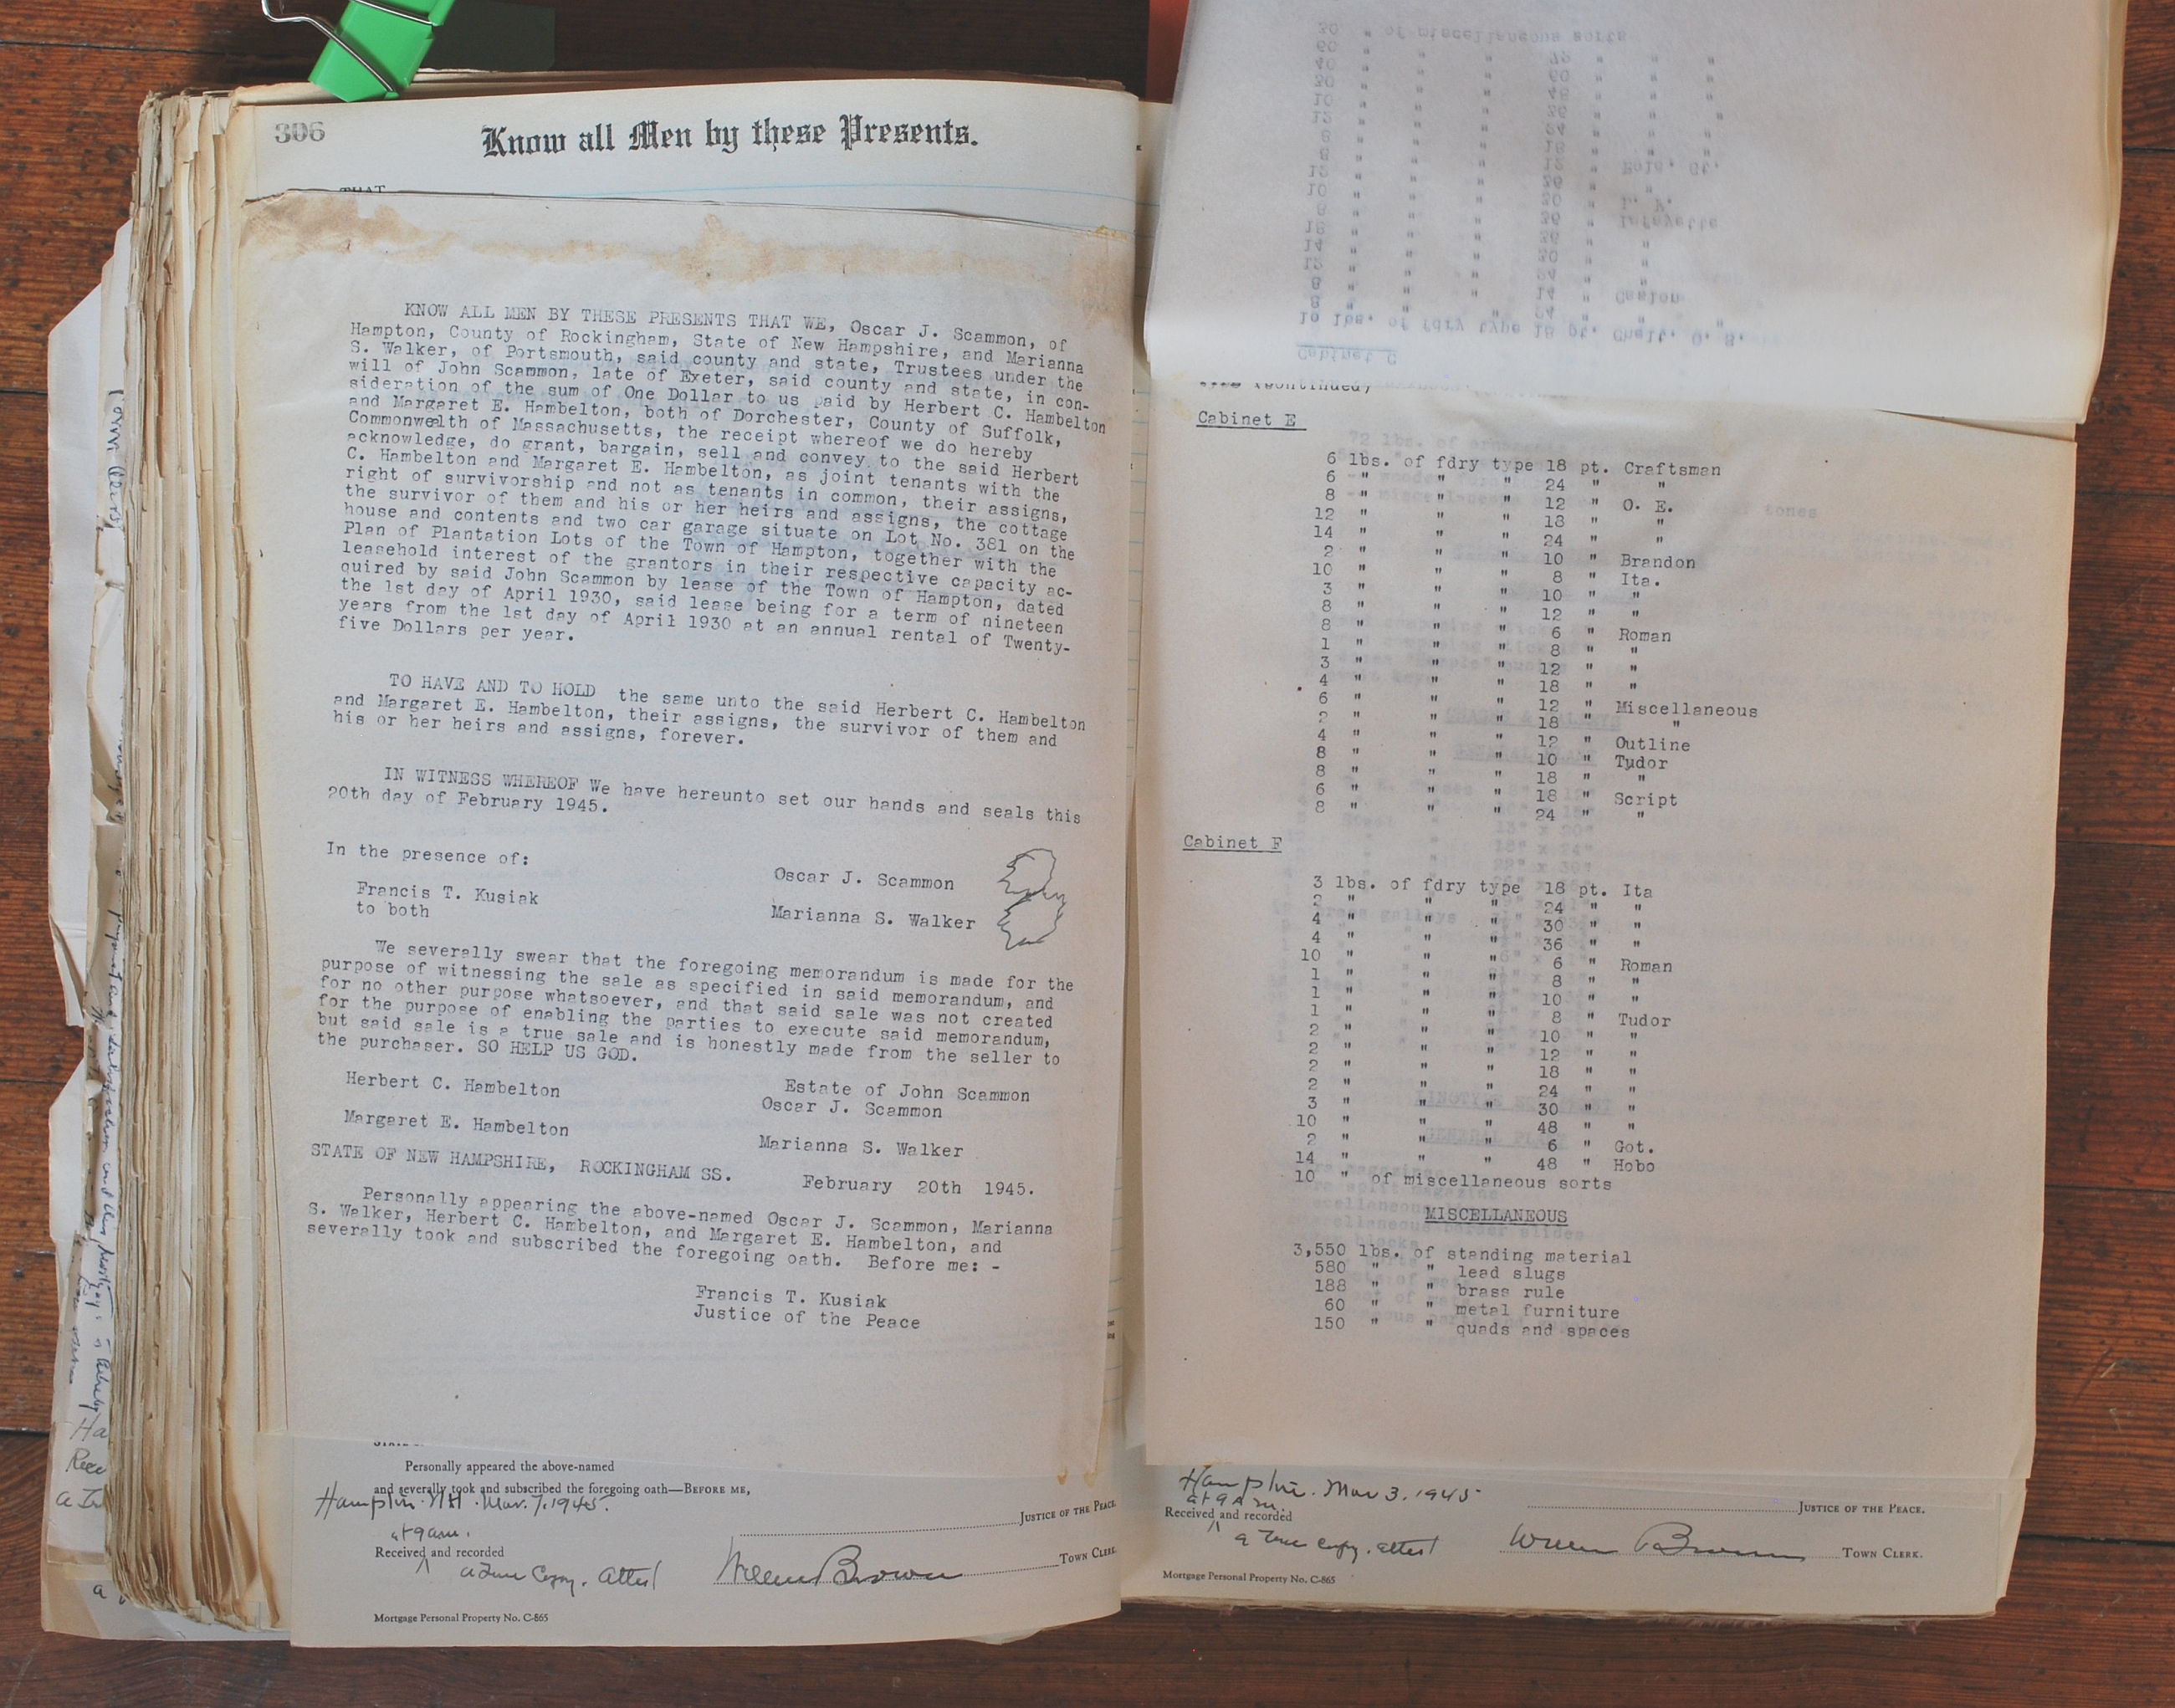 306
Know all Men by these Presents.
THAT
KNOW ALL MEN BY THESE PRESENTS THAT WE, Oscar J. Scammon, of
Hampton, County of Rockingham, State of New Hampshire, and Marianna
S. Walker, of Portsmouth, said county and state, Trustees under the
will of John Scammon, late of Exeter, said county and state, in con-
sideration of the sum of One Dollar to us paid by Herbert C. Hambelton
and Margaret E. Hambelton, both of Dorchester, County of Suffolk,
Commonwealth of Massachusetts, the receipt whereof we do hereby
acknowledge, do grant, bargain, sell and convey to the said Herbert
C. Hambelton and Margaret E. Hambelton, as joint tenants with the
right of survivorship and not as tenants in common, their assigns,
the survivor of them and his or her heirs and assigns, the cottage
house and contents and two car garage situate on Lot No. 381 on the
Plan of Plantation Lots of the Town of Hampton, together with the
leasehold interest of the grantors in their respective capacity ac-
quired by said John Scammon by lease of the Town of Hampton, dated
the 1st day of April 1930, said lease being for a term of nineteen
years from the 1st day of April 1930 at an annual rental of Twenty-
five Dollars per year.
TO HAVE AND TO HOLD the same unto the said Herbert C. Hambelton
and Margaret E. Hambelton, their assigns, the survivor of them and
his or her heirs and assigns, forever.
IN WITNESS WHEREOF We have hereunto set our hands and seals this
20th day of February 1945.
In the presence of:
Oscar J. Scammon
Francis T. Kusiak
to both
Marianna S. Walker
We severally swear that the foregoing memorandum is made for the
purpose of witnessing the sale as specified in said memorandum, and
for no other purpose whatsoever, and that said sale was not created
for the purpose of enabling the parties to execute said memorandum,
but said sale is a true sale and is honestly made from the seller to
the purchaser. SO HELP US GOD.
Herbert C. Hambelton
Estate of John Scammon
Oscar J. Scammon
Margaret E. Hambelton
Marianna S. Walker
STATE OF NEW HAMPSHIRE, ROCKINGHAM SS. February 20th 1945.
Personally appearing the above-named Oscar J. Scammon, Marianna
S. Walker, Herbert C. Hambelton, and Margaret E. Hambelton, and
severally took and subscribed the foregoing oath. Before me: -
Francis T. Kusiak
Justice of the Peace
Personally appeared the above-named
and severally took and subscribed the foregoing oath—BEFORE ME,
Hampton. NH. Mar. 7. 1945.
JUSTICE OF THE PEACE.
at 9 a.m.
Received and recorded
a True Copy. attest
William Brown
TOWN CLERK.
Mortgage Personal Property No. C-865
30 " of miscellaneous sorts
10 lbs. of fdry type 18 pt. Chelt. O. S.
Cabinet C
(Continued)
Cabinet E
6 lbs. of fdry type 18 pt. Craftsman
6 " " " 24 " "
8 " " " 12 " O. E.
12 " " " 18 " "
14 " " " 24 " "
2 " " " 10 " Brandon
10 " " " 8 " Ita.
3 " " " 10 " "
8 " " " 12 " "
8 " " " 6 " Roman
1 " " " 8 " "
3 " " " 12 " "
4 " " " 18 " "
6 " " " 12 " Miscellaneous
2 " " " 18 " "
4 " " " 12 " Outline
8 " " " 10 " Tudor
8 " " " 18 " "
6 " " " 18 " Script
8 " " " 24 " "
Cabinet F
3 lbs. of fdry type 18 pt. Ita
2 " " " 24 " "
4 " " " 30 " "
4 " " " 36 " "
10 " " " 6 " Roman
1 " " " 8 " "
1 " " " 10 " "
1 " " " 8 " Tudor
2 " " " 10 " "
2 " " " 12 " "
2 " " " 18 " "
2 " " " 24 " "
3 " " " 30 " "
10 " " " 48 " "
2 " " " 6 " Got.
14 " " " 48 " Hobo
10 " of miscellaneous sorts
MISCELLANEOUS
3,550 lbs. of standing material
580 " " lead slugs
188 " " brass rule
60 " " metal furniture
150 " " quads and spaces
Hampton. Mar 3. 1945
JUSTICE OF THE PEACE.
at 9 A m.
Received and recorded
a True copy. attest
William Brown
TOWN CLERK.
Mortgage Personal Property No. C-865